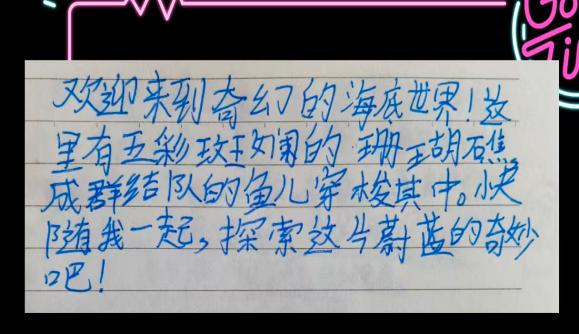 Go
Ti
欢迎来到奇幻的海底世界！这
里有五彩斑斓的珊瑚礁
成群结队的鱼儿穿梭其中。快
随我一起，探索这片蔚蓝的奇妙
吧！